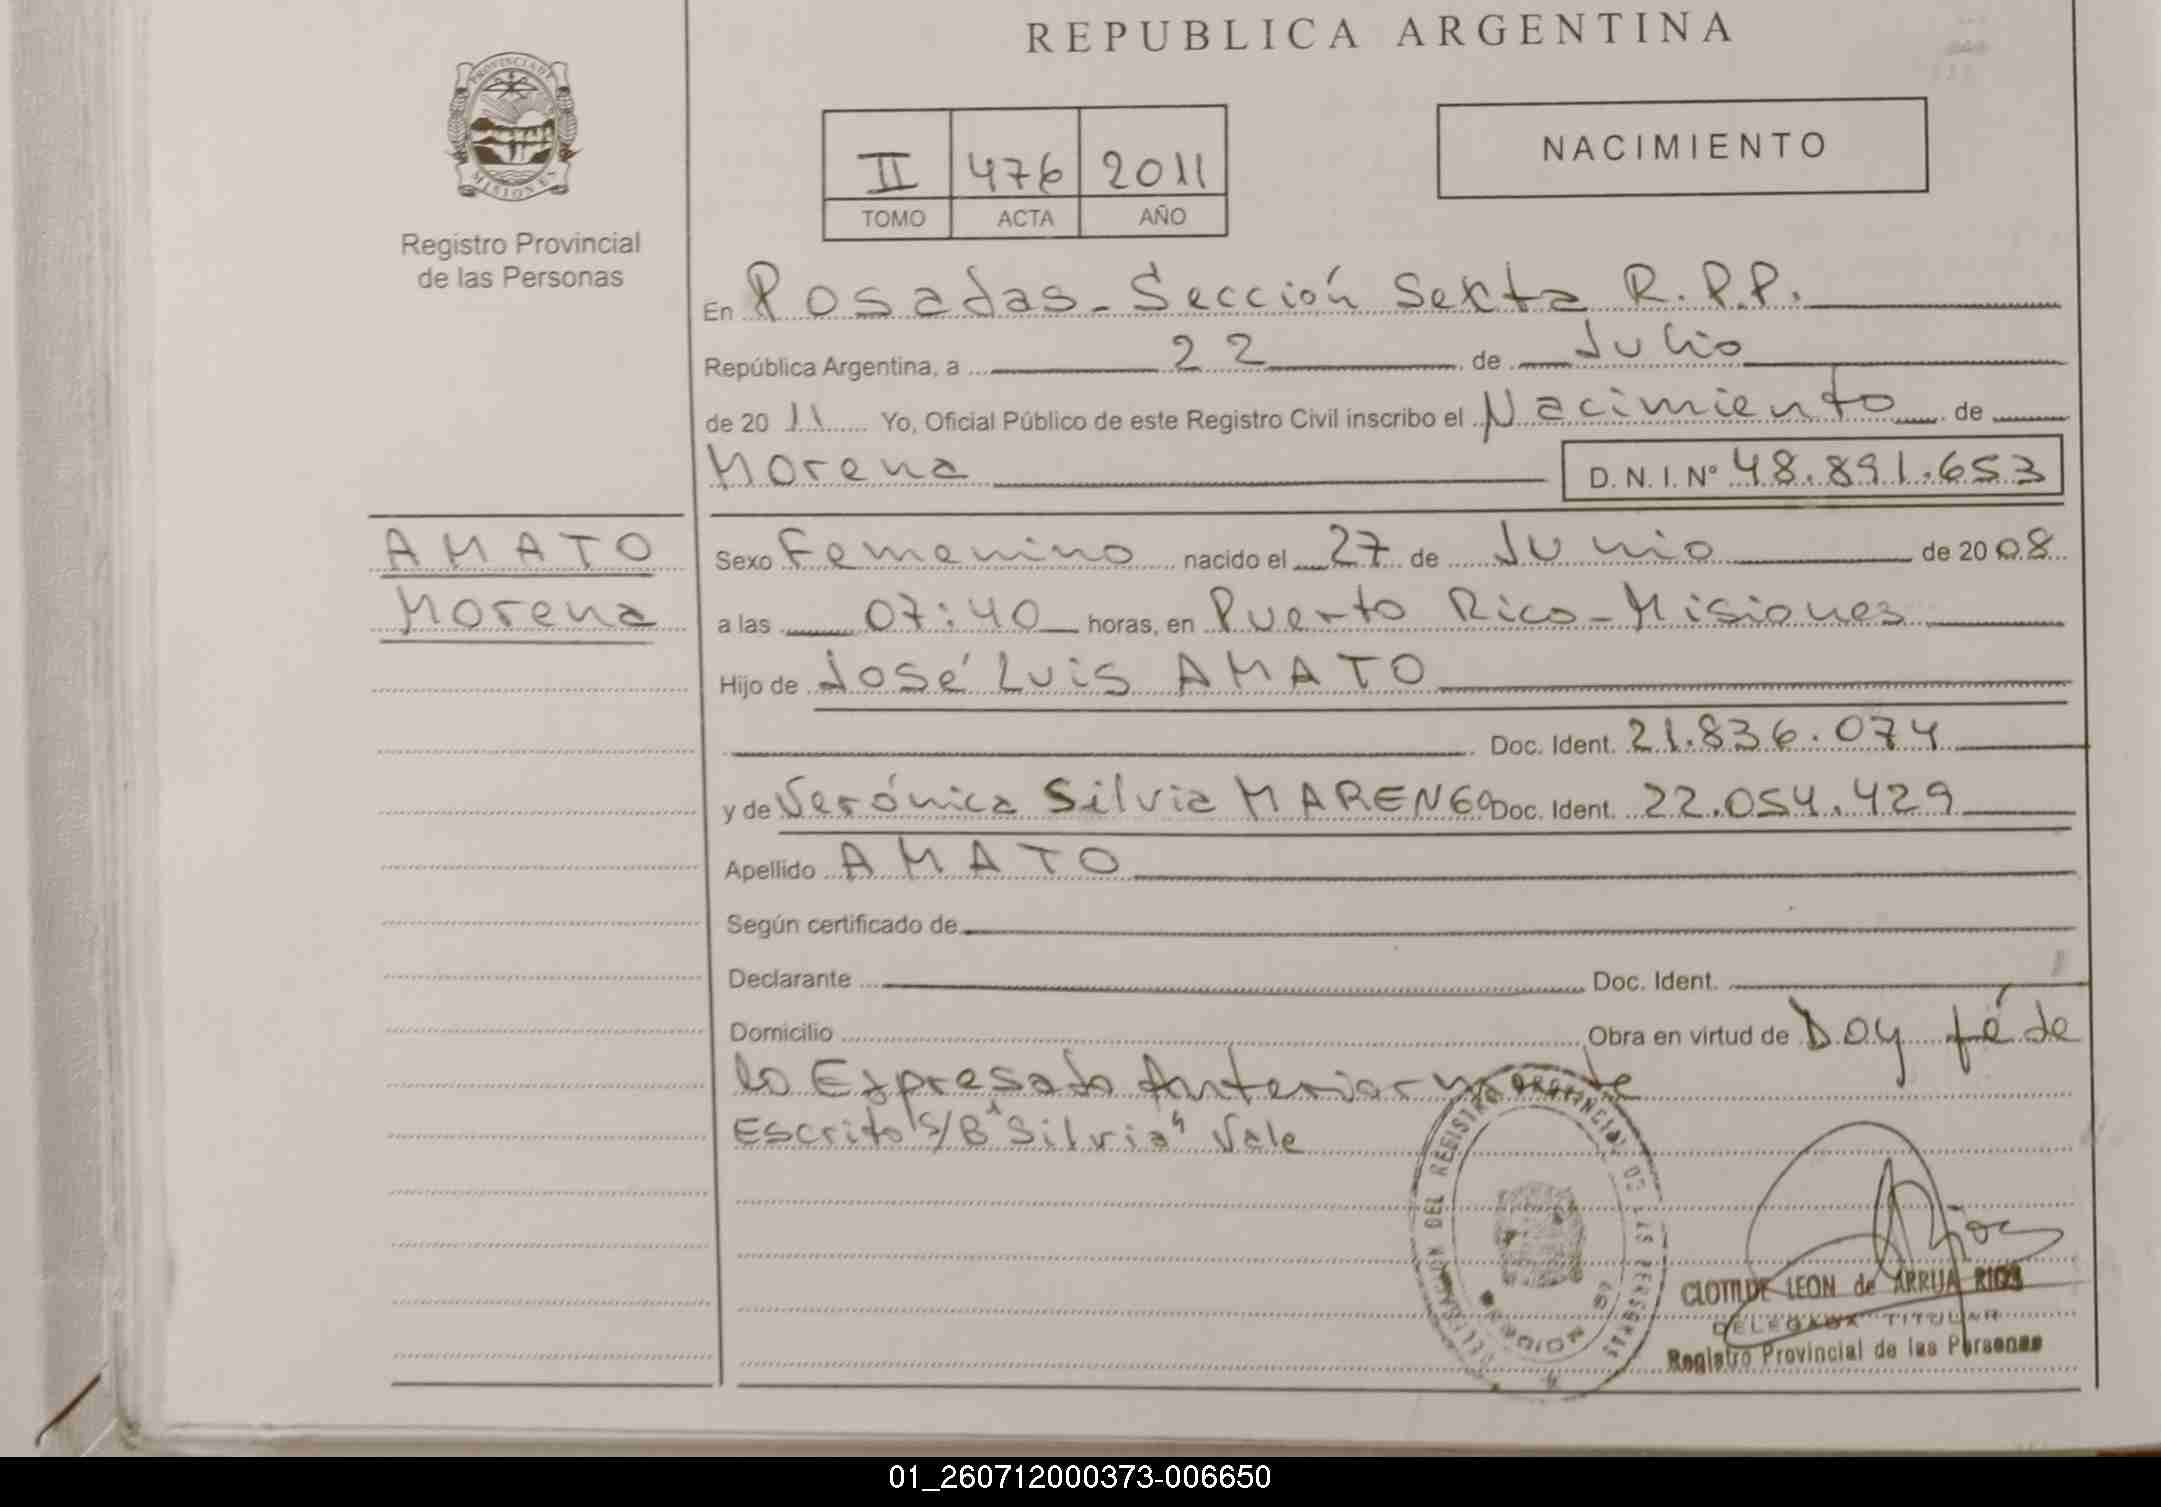 REPUBLICA ARGENTINA
PROVINCIA DE
MISIONES
Registro Provincial
de las Personas
II 476 2011
TOMO ACTA AÑO
NACIMIENTO
En Posadas - Sección Sexta R.P.P.
República Argentina, a 22 de Julio
de 2011 Yo, Oficial Público de este Registro Civil inscribo el Nacimiento de
Morena D. N. I. Nº 48.891.653
AMATO
Morena
Sexo Femenino nacido el 27 de Junio de 2008
a las 07:40 horas, en Puerto Rico - Misiones
Hijo de José Luis AMATO
Doc. Ident. 21.836.074
y de Verónica Silvia MARENGO Doc. Ident. 22.054.429
Apellido AMATO
Según certificado de
Declarante Doc. Ident.
Domicilio Obra en virtud de Doy fé de
lo Expresado Anteriormente
Escrito S/B "Silvia" Vale
DELEGACION DEL REGISTRO PROVINCIAL DE LAS PERSONAS
CLOTILDE LEON de ARRUA RIOS
DELEGADA TITULAR
Registro Provincial de las Personas
01_260712000373-006650